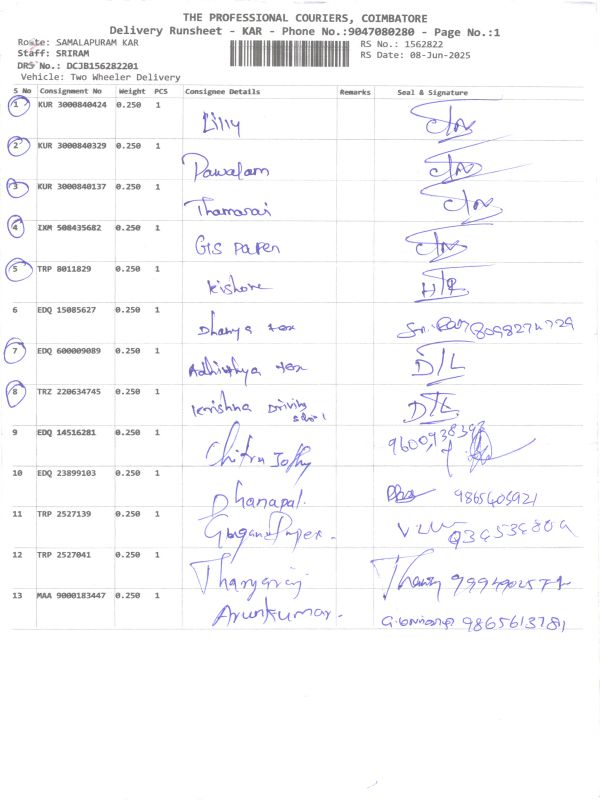 THE PROFESSIONAL COURIERS, COIMBATORE
Delivery Runsheet - KAR - Phone No.:9047080280 - Page No.:1
Route: SAMALAPURAM KAR RS No.: 1562822
Staff: SRIRAM RS Date: 08-Jun-2025
DRS No.: DCJB156282201
Vehicle: Two Wheeler Delivery
S No Consignment No Weight PCS Consignee Details Remarks Seal & Signature
1 KUR 3000840424 0.250 1 Lilly
2 KUR 3000840329 0.250 1 Pawalam
3 KUR 3000840137 0.250 1 Thamarai
4 IXM 508435682 0.250 1 GTS Paper
5 TRP 8011829 0.250 1 Kishore
6 EDQ 15085627 0.250 1 Dhanya tex
7 EDQ 600009089 0.250 1 Adhithya tex D/L
8 TRZ 220634745 0.250 1 Krishna Driving D/L
9 EDQ 14516281 0.250 1 Chitra Jothy
10 EDQ 23899103 0.250 1 Dhanapal.
11 TRP 2527139 0.250 1
12 TRP 2527041 0.250 1 Thangaraj
13 MAA 9000183447 0.250 1 Arunkumar.